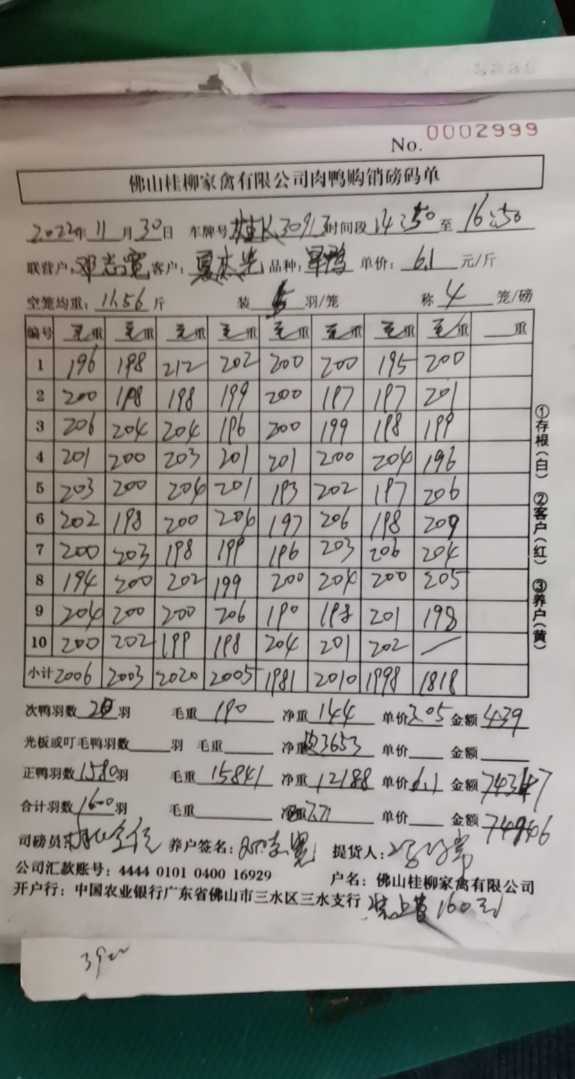 No. 0002999
佛山桂柳家禽有限公司肉鸭购销磅码单
2022年 11月 30日 车牌号 桂K30913 时间段 14:50 至 16:50
联营户: 邓志宽 客户: 品种: 单价: 6.1 元/斤
空笼均重: 11.56 斤 装 5 羽/笼 称 4 笼/磅
编号 毛重 毛重 毛重 毛重 毛重 毛重 毛重 毛重 重
1 196 198 212 202 200 200 195 200
2 200 198 198 199 200 197 197 201
3 206 204 204 196 200 199 198 199
4 201 200 203 201 201 200 204 196
5 203 200 204 201 193 202 197 206
6 202 198 200 204 197 206 198 209
7 200 203 198 199 196 203 206 204
8 194 200 202 199 200 204 200 205
9 204 200 200 206 190 198 201 198
10 200 202 199 198 204 201 202 —
小计 2006 2003 2020 2005 1981 2010 1998 1818
①存根(白) ②客户(红) ③养户(黄)
次鸭羽数 20 羽 毛重 190 净重 144 单价 3.05 金额 439
光板或叮毛鸭羽数 羽 毛重 净重 3653 单价 金额
正鸭羽数 1580 羽 毛重 15841 净重 12188 单价 6.1 金额 74347
合计羽数 1600 羽 毛重 净重 7.71 单价 金额
司磅员: 养户签名: 提货人:
公司汇款账号: 4444 0101 0400 16929 户名: 佛山桂柳家禽有限公司
开户行: 中国农业银行广东省佛山市三水区三水支行 160